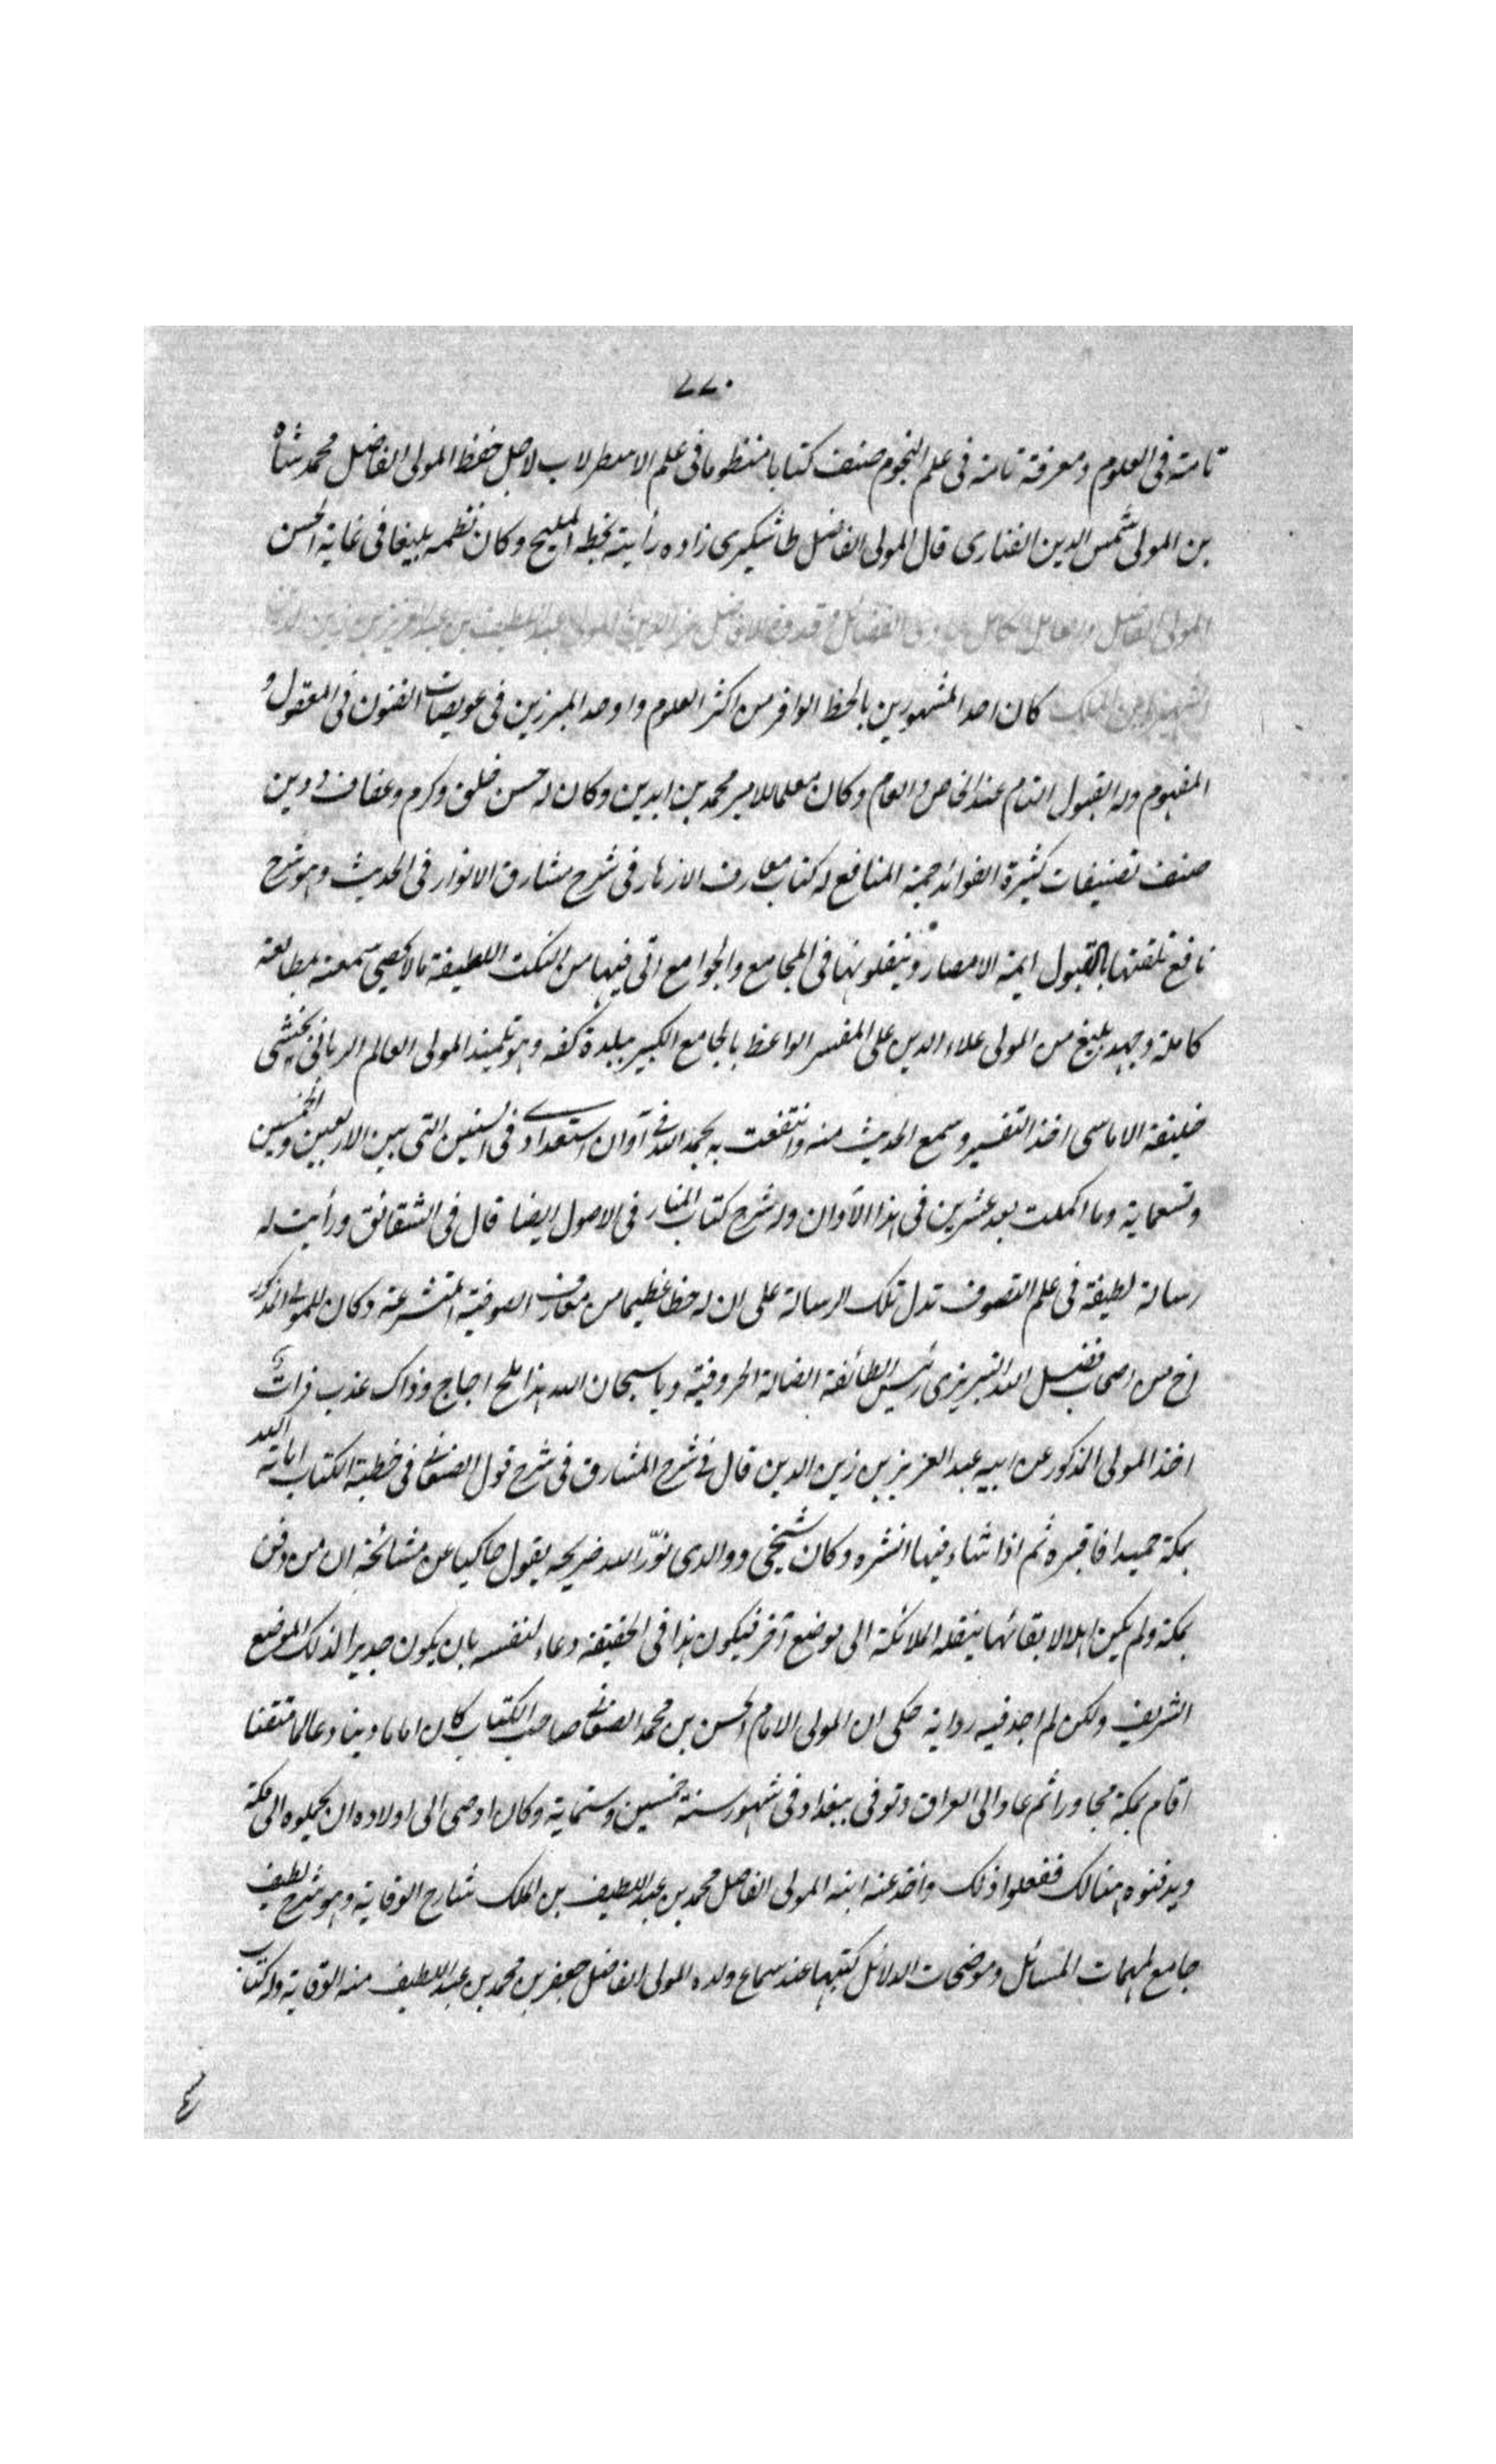 ٢٢٠
تامة فى العلوم ومعرفة تامة فى علم النجوم صنف كتابا منظوما فى علم الاسطرلاب لاجل حفظ المولى الفاضل محمد شاه
بن المولى شمس الدين الفنارى قال المولى الفاضل طاشكبرى زاده رأيته بخطه المليح وكان نظمه بليغا فى غاية الحسن
المولى الفاضل والعامل الكامل حاوى الفضائل قدوة الافاضل عز الدين المولى عبد اللطيف بن عبد العزيز بن زين الدين
الشهير بابن الملك كان احد المشهورين بالحظ الوافر من اكثر العلوم واوحد المبرزين فى عويصات الفنون فى المعقول و
المفهوم وله القبول التام عند الخاص والعام وكان معلما للامير محمد بن ايدين وكان له حسن خلق وكرم وعفاف ودين
صنف تصنيفات كثيرة الفوائد جمة المنافع له كتاب مبارق الازهار فى شرح مشارق الانوار فى الحديث وهو شرح
نافع تلقتها بالقبول ايمة الامصار وينقلونها فى المجامع والجوامع اتى فيها من النكت اللطيفة مالا يحصى سمعته بمطالعة
كاملة وجهد بليغ من المولى علاء الدين على المفسر الواعظ بالجامع الكبير ببلدة كفه وهو تلميذ المولى العالم الربانى بخشى
خليفة الاماسى اخذ التفسير وسمع الحديث منه وانتفعت به بحمد الله فى آوان استعدادى فى السنين التى بين الاربعين والخمسين
وتسعماية وما اكملت بعد عشرين فى هذا الآوان وله شرح كتاب المنار فى الاصول ايضا قال فى الشقائق ورأيت له
رسالة لطيفة فى علم التصوف تدل تلك الرسالة على ان له حظا عظيما من معارف الصوفية المتشرعة وكان للمولى المذكور
اخ من اصحاب فضل الله التبريزى رئيس الطائفة الضالة الحروفية ويا سبحان الله هذا ملح اجاج وذاك عذب فرات
اخذ المولى المذكور عن ابيه عبد العزيز بن زين الدين قال فى شرح المشارق فى شرح قول الصغانى فى خطبة الكتاب اماته الله
بمكة حميدا فاقبره ثم اذا شاء فيها انشره وكان شيخى ووالدى نوّر الله ضريحه يقول حاكيا عن مشائخه ان من دفن
بمكة ولم يكن اهلا لابقائها ينقله الملائكة الى موضع آخر فيكون هذا فى الحقيقة دعاء لنفسه بان يكون جديرا لذلك الموضع
الشريف ولكن لم اجد فيه رواية حكى ان المولى الامام الحسن بن محمد الصغانى صاحب الكتاب كان اماما دينا وعالما متقنا
اقام بمكة مجاورا ثم عاد الى العراق وتوفى ببغداد فى شهور سنة خمسين وستماية وكان اوصى الى اولاده ان يحملوه الى مكة
ويدفنوه هنالك ففعلوا ذلك وأخذ عنه ابنه المولى الفاضل محمد بن عبد اللطيف بن الملك شارح الوقاية وهو شرح لطيف
جامع لمهمات المسائل وموضحات الدلائل كتبها عند سماع ولده المولى الفاضل جعفر بن محمد بن عبد اللطيف منه الوقاية وله كتاب